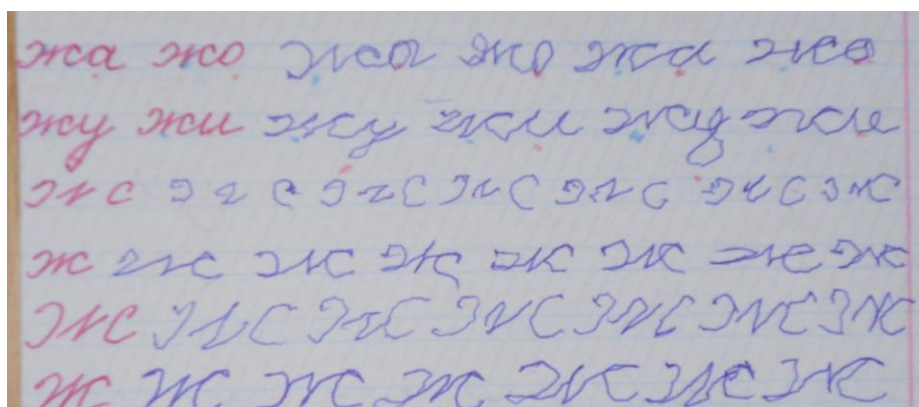 жа жо жа жо жа жо
жу жи жу жи жу жи
ж ж ж ж ж ж ж
ж ж ж ж ж ж ж ж
Ж Ж Ж Ж Ж Ж Ж
Ж Ж Ж Ж Ж Ж Ж